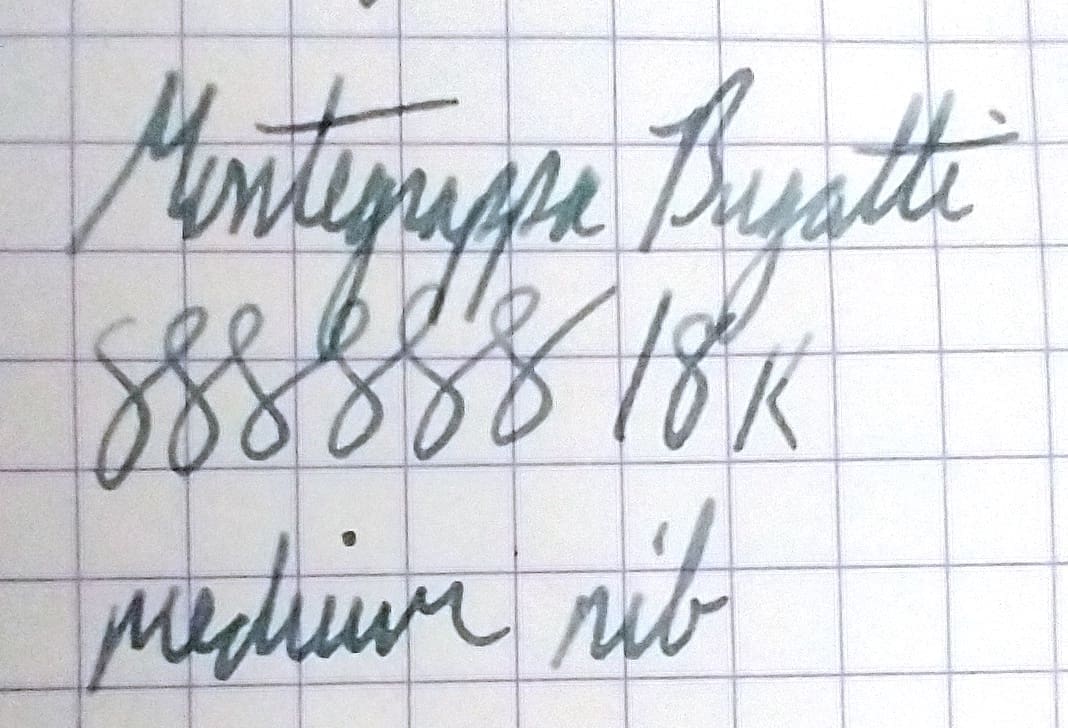 Montegrappa Bugatti
888888 18K
medium nib